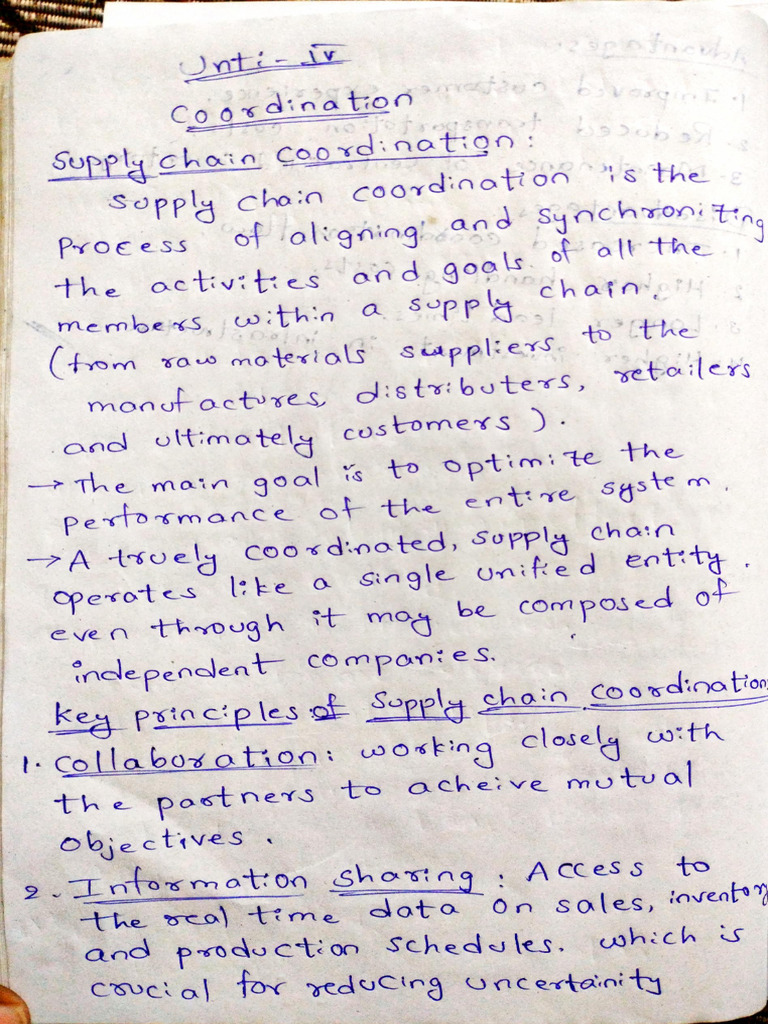 Unti - IV
Coordination
Supply chain coordination :
Supply chain coordination is the
Process of aligning and synchronizing
the activities and goals of all the
members within a supply chain.
(from raw materials suppliers to the
manufactures, distributers, retailers
and ultimately customers ).
→ The main goal is to optimize the
performance of the entire system.
→ A truely coordinated, supply chain
operates like a single unified entity.
even through it may be composed of
independent companies.
key principles of supply chain coordination:
1. Collaboration: working closely with
the partners to acheive mutual
objectives .
2. Information sharing : Access to
the real time data on sales, inventory
and production schedules. which is
crucial for reducing uncertainity